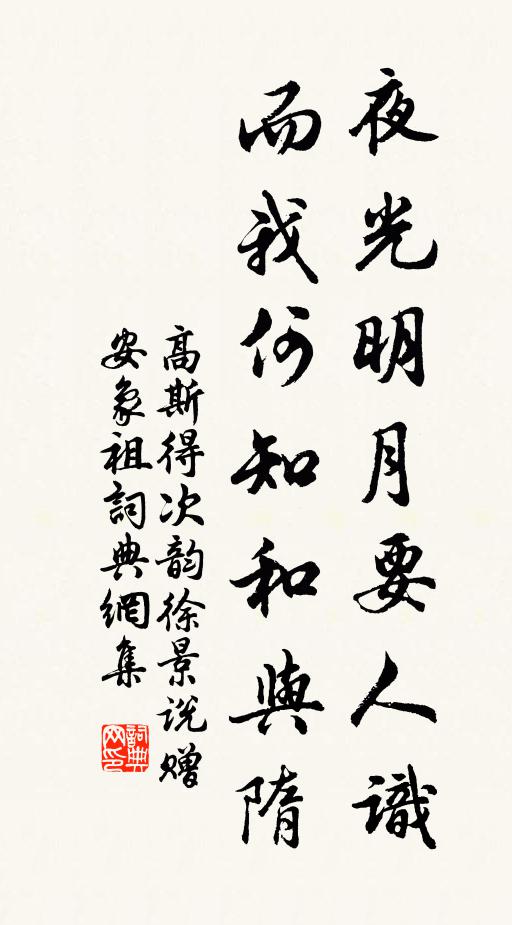 夜光明月要人識
而我何知和與隋
高斯得次韵徐景说赠
安象祖詞典網集
詞典网印